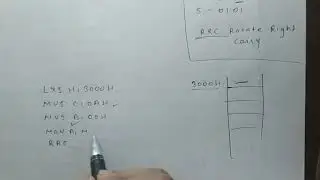 S - 0101
RRC Rotate Right
Carry
LXI H, 3000H
MVI C, 0AH
MVI B, 00H
MOV A, M
RRC
3000H